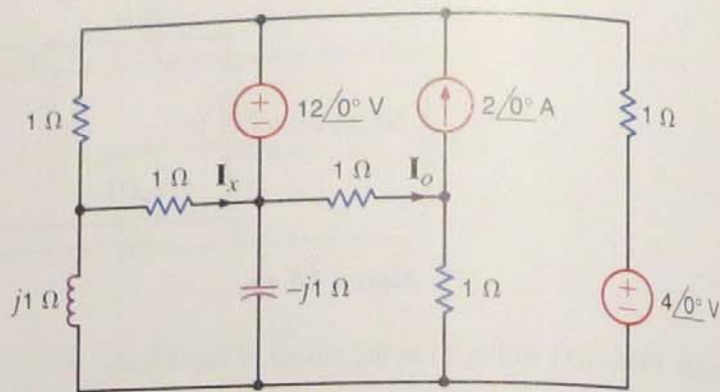 1 Ω
12/0° V
2/0° A
1 Ω
1 Ω
Iₓ
1 Ω
Iₒ
j1 Ω
−j1 Ω
1 Ω
4/0° V